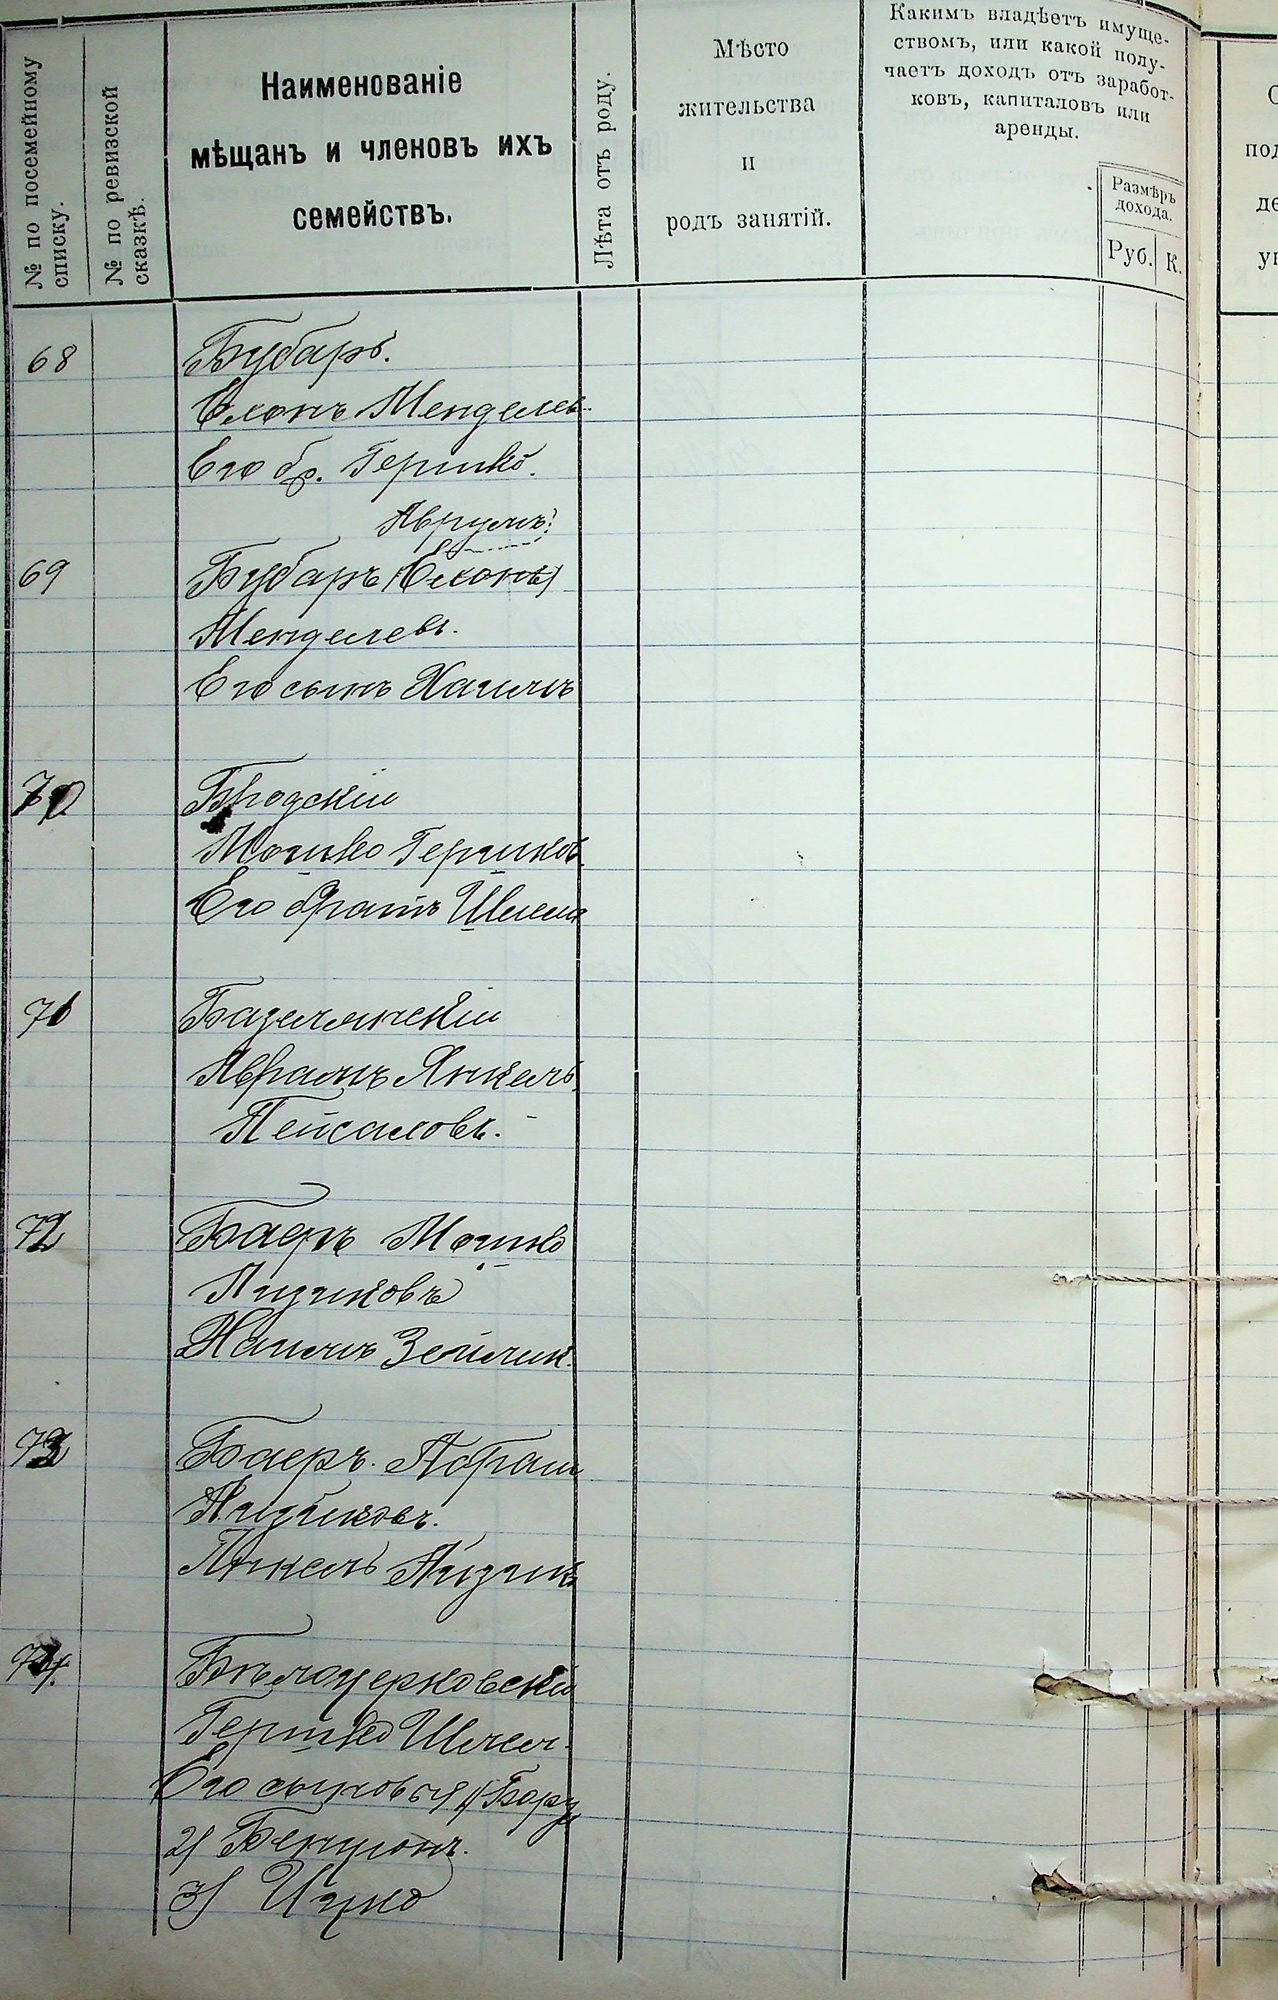 № по посемейному
списку.
№ по ревизской
сказкѣ.
Наименованіе
мѣщанъ и членовъ ихъ
семействъ.
Лѣта отъ роду.
Мѣсто
жительства
и
родъ занятій.
Какимъ владѣетъ имуще-
ствомъ, или какой полу-
чаетъ доходъ отъ заработ-
ковъ, капиталовъ или
аренды.
Размѣръ
дохода.
Руб. К.
68 Бубаръ.
Елонъ Менделев.
Его бр. Гершко.
Аврумъ
69 Бубаръ (Елонъ)
Менделевъ.
Его сынъ Хаимъ
70 Бродскій
Мошко Гершков
Его братъ Шлема
71 Базелянскій
Аврамъ Янкель
Пейсаховъ.
72 Баеръ Мошко
Айзиковъ
Хаимъ Зейлик.
73 Баеръ Абрам
Айзиковъ.
Янкель Айзикъ
74. Бѣлоцерковскій
Гершко Шлем.
Его сыновья 1) Бору
2) Бенціонъ.
3) Ицко